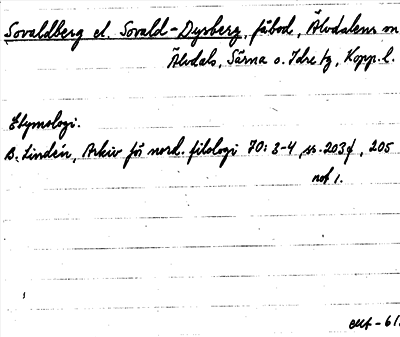 Sovaldberg el. Sovald-Dysberg, fäbod, Älvdalens sn
Älvdals, Särna o. Idre tg, Kopp. l.
Etymologi.
B. Lindén, Arkiv för nord. filologi 70: 3-4, ss. 203f, 205
not 1.
okt-61.